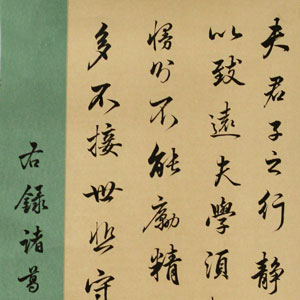 夫君子之行静
以致遠夫學須
慢則不能勵精
多不接世悲守
右錄諸葛